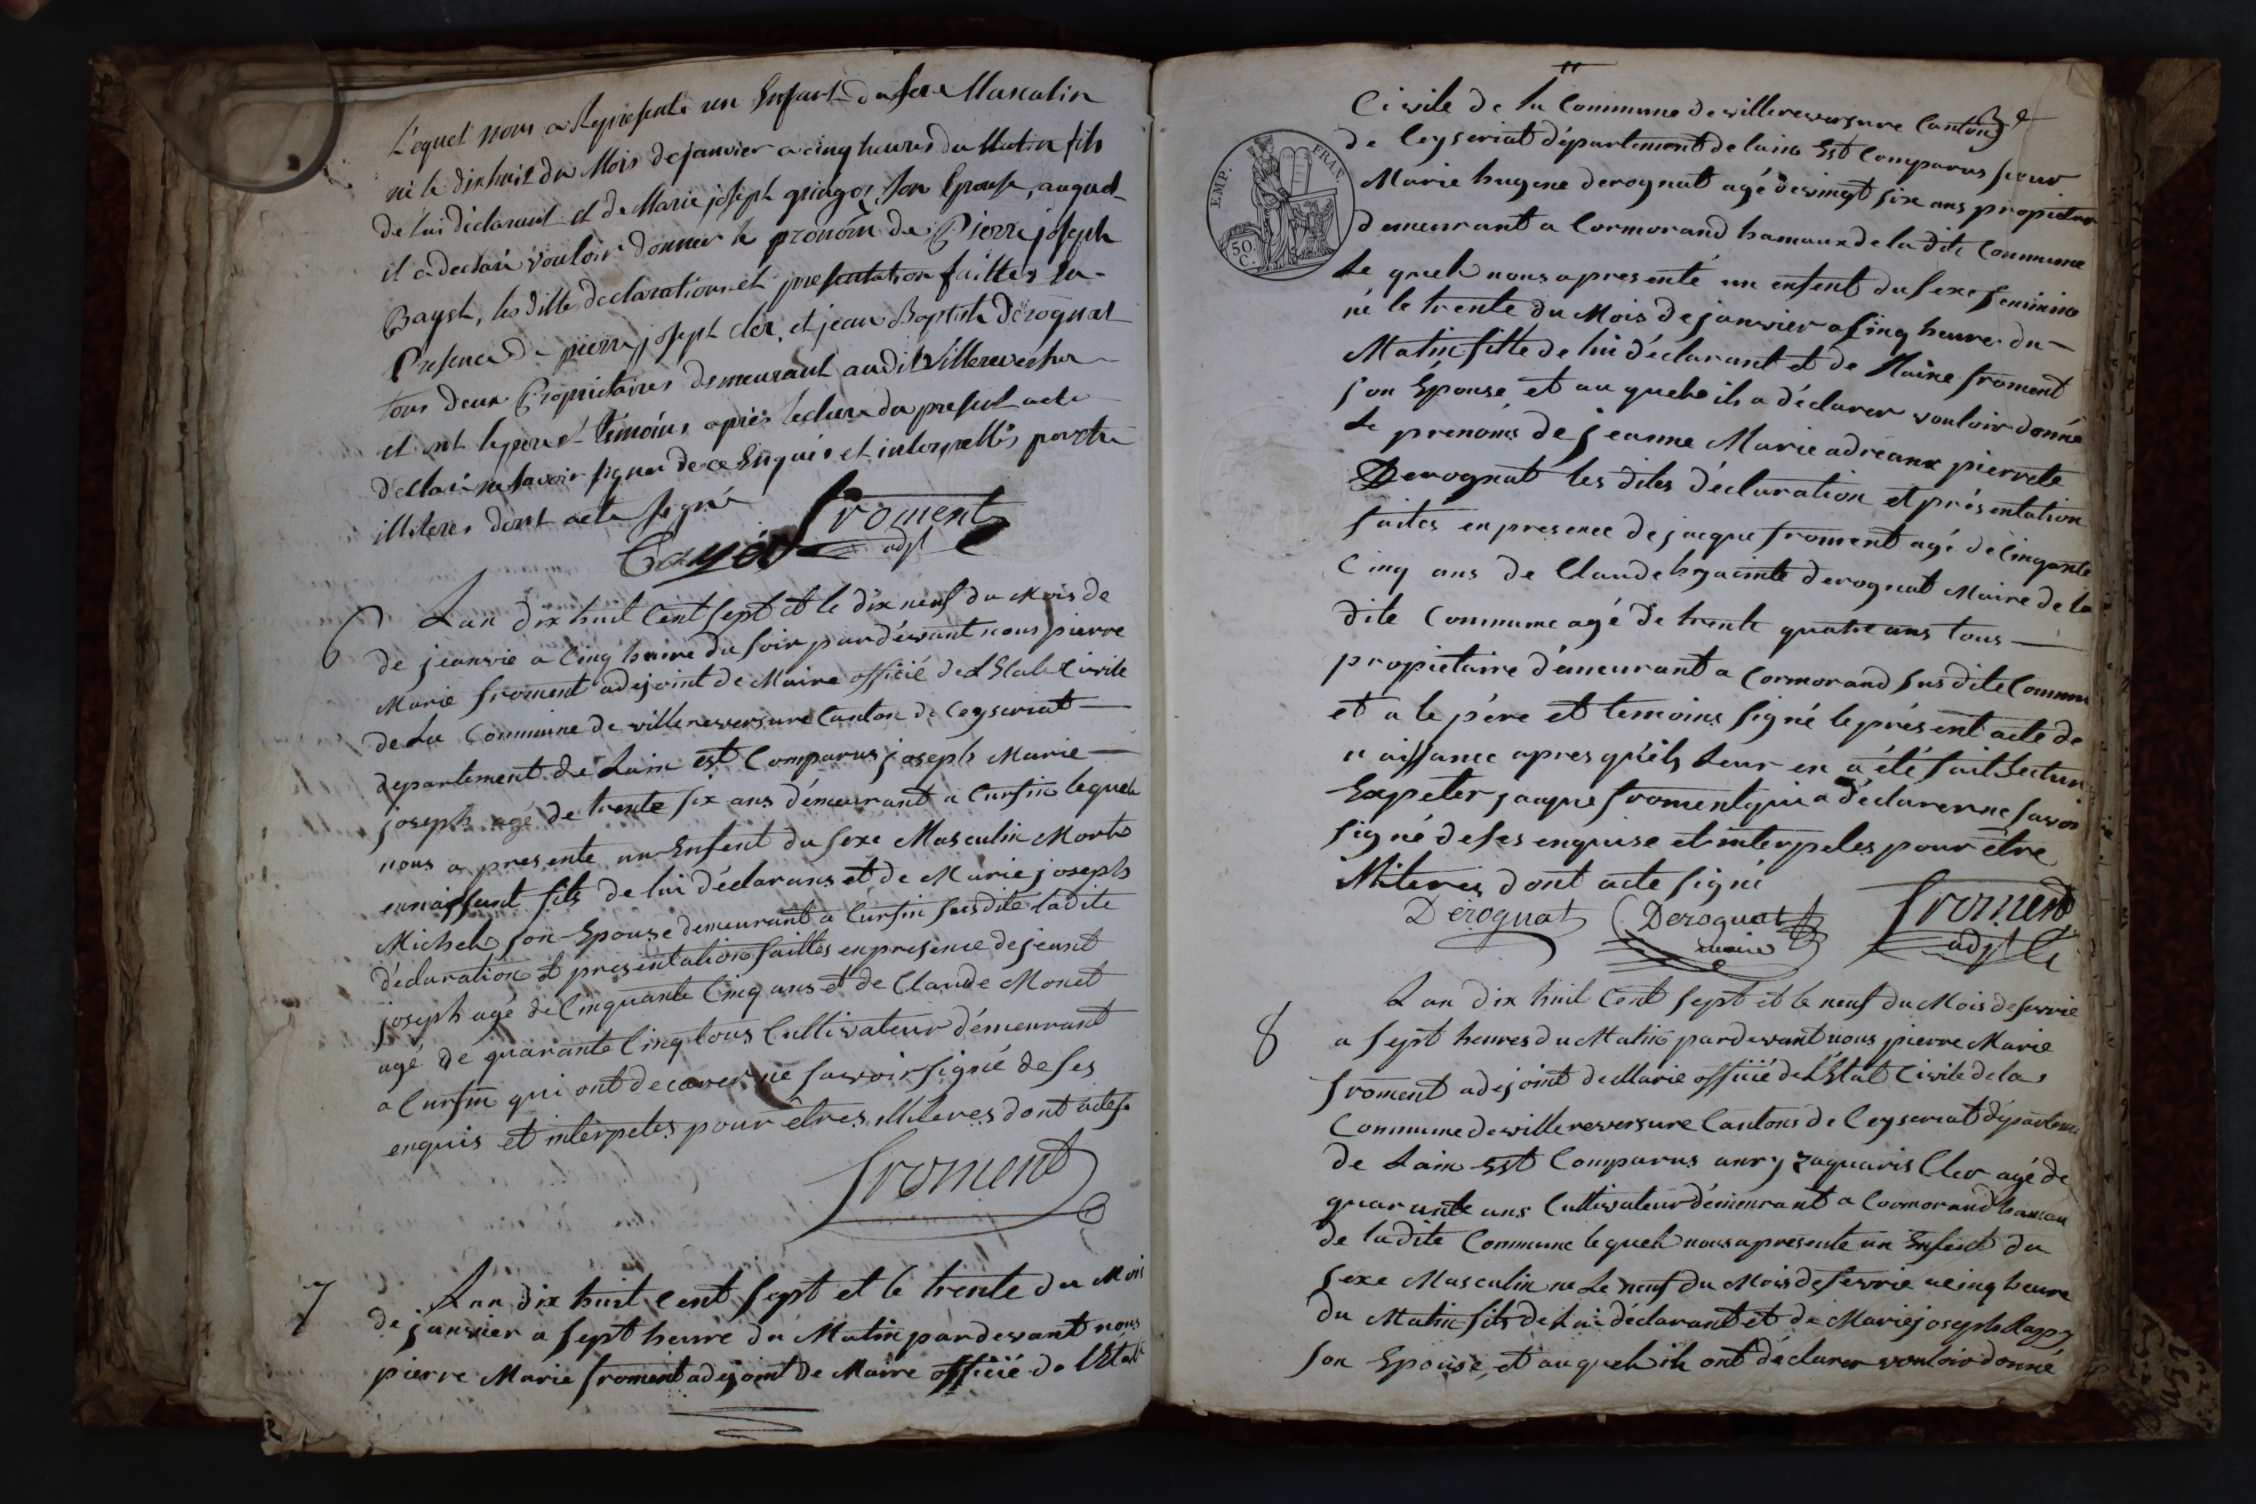 Lequel nous a Représenté un Enfant du sexe Masculin
né le dix huit du Mois de janvier a cinq heures du Matin fils
de lui déclarant et de Marie joseph son Epouse, auquel
il a declaré vouloir donner le prénom de Pierre joseph
les dittes déclarations et présentation faittes en
Présence de pierre joseph cler, et jean Baptiste Dérognat
tous deux Propriétaires demeurant audit Villereversure
et ont le pere et témoins après lecture du present acte
déclaré ne savoir signer de ce Enquis et interpellés pour être
illiteres dont acte signé
froment
adjt
6 Lan dix huit Cent sept et le dix neuf du Mois de
de jeanvie a Cinq heure du soir pardevant nous pierre
Marie froment adejoint de Maire officié de L'Etat Civile
de La Commune de villereversure Canton de Ceyseriat
département de Lain est Comparus joseph Marie
joseph agé de trente six ans démeurant a Cursin lequel
nous a présenté un Enfent du sexe Masculin Mort
ennaissant fils de lui déclarans et de Marie joseph
Michel son Epouse demeurant a Cursin susdite ladite
déclaration et présentation faittes en presence de jeant
joseph agé de Cinquante Cinq ans et de Claude Monet
agé de quarante Cinq tous Cultivateur démeurant
a Cursin qui ont decarer ne savoir signé de ses
enquis et interpetes pour êtres illiteres dont acte
froment
7 Lan dix huit Cent sept et le trente du Mois
de janvier a sept heure du Matin pardevant nous
pierre Marie froment adejoint de Maire officié de l'Etat
11
Civile de la Commune de villereversure Canton
de Ceyseriat département de lain Est Comparus sieur
Marie hugene derognat agé de vingt six ans propietere
demeurant a Cormorand hamaux de la dite Commune
Le quel nous a presenté un enfent du sexe feminine
né le trente du Mois de janvier a Cinq heure du
Matin fille de lui déclarant et de froment
son Epouse et au quele ils a déclarer vouloir donné
Le prenoms de jeanne Marie adreanx pierrete
Derognat les dites déclaration et présentation
faites en presence de jacque froment agé de Cinqante
Cinq ans de Claude hyacinte derognat Maire de la
dite Commune agé de trente quatre ans tous
propietaire démeurant a Cormorand susdite Commune
et a le père et temoins signé le présent acte de
naissance apres qu'els leur en a été fait lectur
Expeter jacque froment qui a déclarer ne savoir
signé de ses enquise et interpeles pour être
illiteres dont acte signé
Dérognat Derognat froment
maire adjt
8 Lan dix huit Cent sept et le neuf du Mois de fevrie
a sept heures du Matin pardevant nous pierre Marie
froment adejoint de Marie officié de L'Etat Civile de la
Commune de villereversure Cantons de Ceyseriat départeme
de Lain Est Comparus anry zaquaris Cler agé de
quarante ans Cultivateur démeurant a Cormorand hamau
de ladite Commune lequel nous apresente un Enfent du
sexe Masculin né Le neuf du Mois de fevrie a Cinq heure
du Matin fils de Lui déclarant et de Marie joseph
son Epouse, et au quel ils ont déclarer vouloir donné
EMP. FRAN.
50 C.